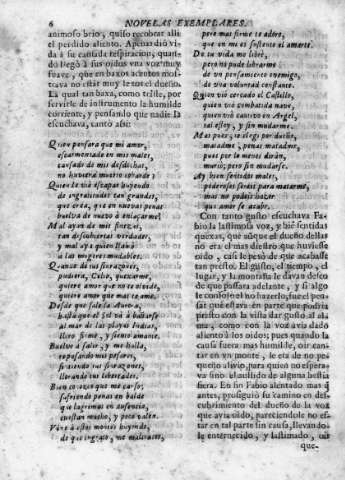 6 NOVELAS EXEMPLARES.
animoso brio, quiso recobrar alli
el perdido aliento. Apenas dió vi-
da à su cansada respiracion, quan-
do llegó à sus oìdos una voz muy
suave, que en baxos acentos mos-
trava no estàr muy lexos el dueño.
La qual tan baxa, como triste, por
servirle de instrumento la humilde
corriente, y pensando que nadie la
escuchava, cantò assi:
Quien pensara que mi amor,
escarmentado en mis males,
cansado de mis desdichas,
no huviera muerto cobarde?
Quien le viò escapar huyendo
de ingratitudes tan grandes,
que crea, que en nuevas penas
buelva de nuevo à enlaçarme?
Mal ayan de mis
tan descubiertas verdades,
y mal aya quien llamò
à las mugeres mudables.
Quando de tus sinrazones
pudiera, Celio, quexarme,
quiere amor que no te olvide,
quiere amor que mas te ame.
Desde que sale la Aurora,
hasta que el Sol và à bañarse
al mar de las playas Indias,
lloro firme, y siento amante.
Buelve à salir, y me halla,
repasando mis pesares,
sintiendo tus sinrazones,
llorando tus libertades.
Bien conozco que me canso,
sufriendo penas en balde
que lagrimas en ausencia,
cuestan mucho, y poco valen.
Vine à estos montes huyendo,
de que ingrato, me maltrates,
pero mas firme te adoro,
que en mi es sustento el amarte.
De tu vista me libré,
pero no pude librarme
de un pensamiento enemigo,
de una voluntad constante.
Quien viò cercado el Castillo,
quien viò combatida nave,
quien viò cautivo en Argel,
tal estoy, y sin mudarme.
Mas pues te elegì por dueño,
matadme, penas matadme,
pues por lo menos diràn,
murió; pero sin mudarse.
Ay bien sentidos males,
poderosos sereis para matarme,
mas no podeis hazer
que amor se acabe.
Con tanto gusto escuchava Fa-
bio la lastimosa voz, y bien sentidas
quexas, que aunque el dueño dellas
no era el mas diestro que huviesse
oìdo, casi le pesò de que acabasse
tan presto. El gusto, el tiempo, el
lugar, y la montaña le davan deseo
de que passara adelante, y si algo
le consolò el no hazerlo, fue el pen-
sar que estava en parte que podria
presto con la vista dar gusto al al-
ma, como con la voz avia dado
aliento à los oìdos; pues quando la
causa fuera mas humilde, oìr can-
tar en un monte, le era de no pe-
queño alivio, para quien no espera-
va sino el aullido de alguna bestia
fiera. En fin Fabio alentado mas q̃
antes, prosiguiò su camino en des-
cubrimiento del dueño de la voz
que avia oìdo, pareciendole no es-
tar en tal parte sin causa, llevando-
le enternecido, y lastimado, oìr
que-